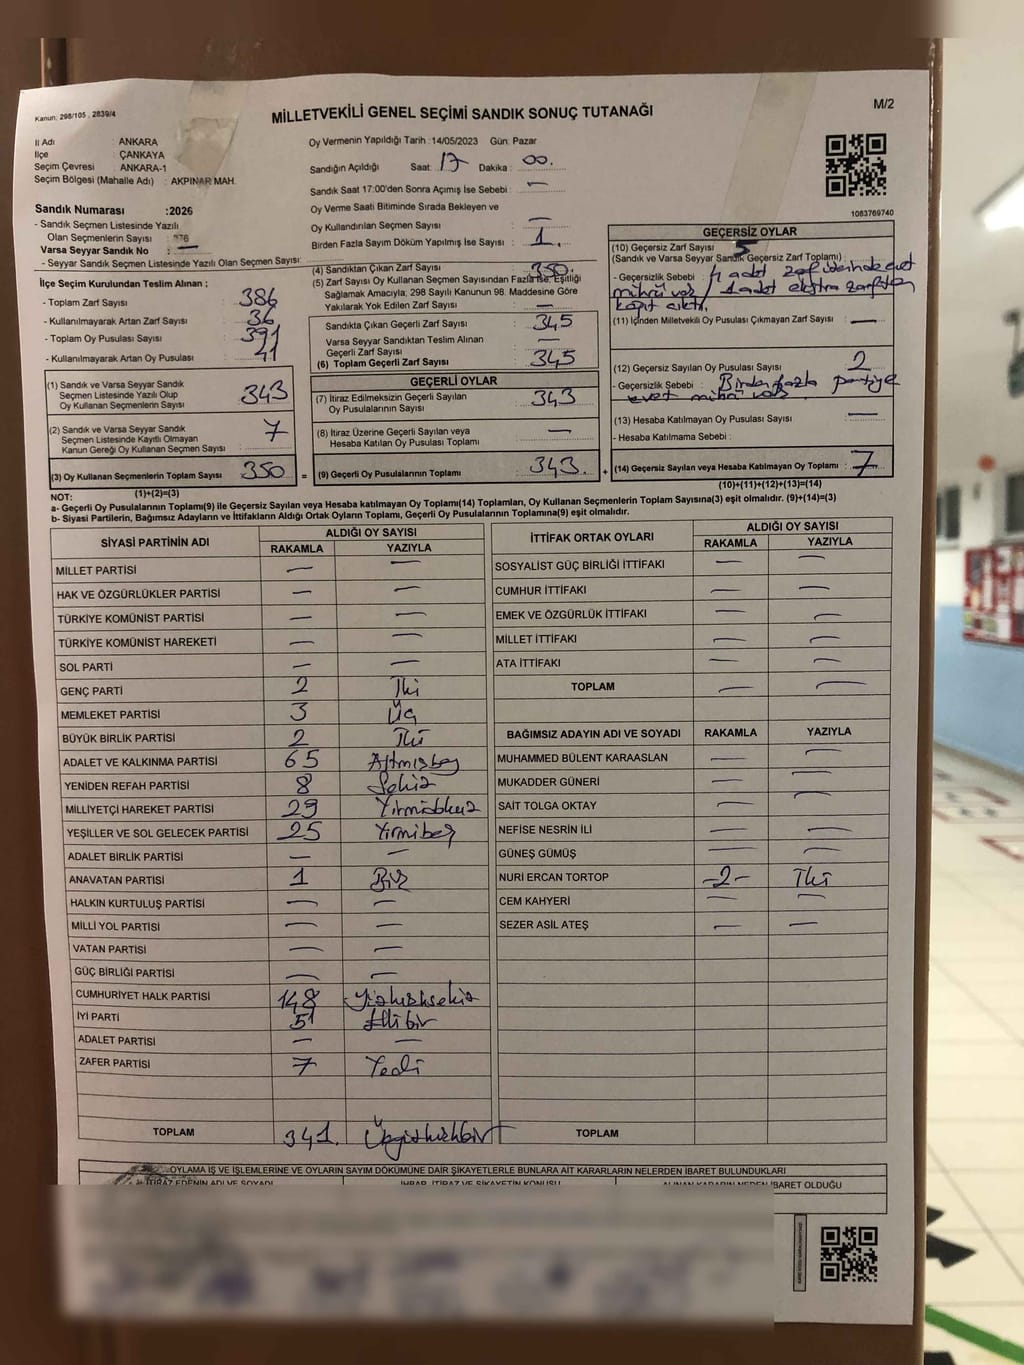 Kanun: 298/105 , 2839/4
M/2
MİLLETVEKİLİ GENEL SEÇİMİ SANDIK SONUÇ TUTANAĞI
İl Adı : ANKARA
İlçe : ÇANKAYA
Seçim Çevresi : ANKARA-1
Seçim Bölgesi (Mahalle Adı) : AKPINAR MAH.
Sandık Numarası :2026
- Sandık Seçmen Listesinde Yazılı
Olan Seçmenlerin Sayısı :
Varsa Seyyar Sandık No : —
- Seyyar Sandık Seçmen Listesinde Yazılı Olan Seçmen Sayısı:
Oy Vermenin Yapıldığı Tarih :14/05/2023 Gün: Pazar
Sandığın Açıldığı Saat: 17 Dakika : 00.
Sandık Saat 17:00'den Sonra Açımış İse Sebebi : —
Oy Verme Saati Bitiminde Sırada Bekleyen ve
Oy Kullandırılan Seçmen Sayısı : —
Birden Fazla Sayım Döküm Yapılmış İse Sayısı : 1.
1083769740
İlçe Seçim Kurulundan Teslim Alınan ;
- Toplam Zarf Sayısı : 386
- Kullanılmayarak Artan Zarf Sayısı : 36
- Toplam Oy Pusulası Sayısı : 391
- Kullanılmayarak Artan Oy Pusulası : 41
(1) Sandık ve Varsa Seyyar Sandık
Seçmen Listesinde Yazılı Olup
Oy Kullanan Seçmenlerin Sayısı : 343
(2) Sandık ve Varsa Seyyar Sandık
Seçmen Listesinde Kayıtlı Olmayan
Kanun Gereği Oy Kullanan Seçmen Sayısı : 7
(3) Oy Kullanan Seçmenlerin Toplam Sayısı : 350
(1)+(2)=(3)
(4) Sandıktan Çıkan Zarf Sayısı : 350.
(5) Zarf Sayısı Oy Kullanan Seçmen Sayısından Fazla ise, Eşitliği
Sağlamak Amacıyla, 298 Sayılı Kanunun 98. Maddesine Göre
Yakılarak Yok Edilen Zarf Sayısı : —
Sandıkta Çıkan Geçerli Zarf Sayısı : 345
Varsa Seyyar Sandıktan Teslim Alınan
Geçerli Zarf Sayısı : —
(6) Toplam Geçerli Zarf Sayısı : 345
GEÇERLİ OYLAR
(7) İtiraz Edilmeksizin Geçerli Sayılan
Oy Pusulalarının Sayısı : 343
(8) İtiraz Üzerine Geçerli Sayılan veya
Hesaba Katılan Oy Pusulası Toplamı : —
= (9) Geçerli Oy Pusulalarının Toplamı : 343. +
GEÇERSİZ OYLAR
(10) Geçersiz Zarf Sayısı : 5
(Sandık ve Varsa Seyyar Sandık Geçersiz Zarf Toplamı) :
- Geçersizlik Sebebi : 4 adet zarf üzerinde evet
mührü var / 1 adet ekstra zarftan
kağıt çıktı.
(11) İçinden Milletvekili Oy Pusulası Çıkmayan Zarf Sayısı : —
(12) Geçersiz Sayılan Oy Pusulası Sayısı : 2
- Geçersizlik Sebebi : Birden fazla partiye
evet mührü var.
(13) Hesaba Katılmayan Oy Pusulası Sayısı : —
- Hesaba Katılmama Sebebi :
(14) Geçersiz Sayılan veya Hesaba Katılmayan Oy Toplamı : 7
(10)+(11)+(12)+(13)=(14)
NOT:
a- Geçerli Oy Pusulalarının Toplamı(9) ile Geçersiz Sayılan veya Hesaba katılmayan Oy Toplamı(14) Toplamları, Oy Kullanan Seçmenlerin Toplam Sayısına(3) eşit olmalıdır. (9)+(14)=(3)
b- Siyasi Partilerin, Bağımsız Adayların ve İttifakların Aldığı Ortak Oyların Toplamı, Geçerli Oy Pusulalarının Toplamına(9) eşit olmalıdır.
SİYASİ PARTİNİN ADI ALDIĞI OY SAYISI
RAKAMLA YAZIYLA
MİLLET PARTİSİ — —
HAK VE ÖZGÜRLÜKLER PARTİSİ — —
TÜRKİYE KOMÜNİST PARTİSİ — —
TÜRKİYE KOMÜNİST HAREKETİ — —
SOL PARTİ — —
GENÇ PARTİ 2 İki
MEMLEKET PARTİSİ 3 Üç
BÜYÜK BİRLİK PARTİSİ 2 İki
ADALET VE KALKINMA PARTİSİ 65 Altmışbeş
YENİDEN REFAH PARTİSİ 8 Sekiz
MİLLİYETÇİ HAREKET PARTİSİ 29 Yirmidokuz
YEŞİLLER VE SOL GELECEK PARTİSİ 25 Yirmibeş
ADALET BİRLİK PARTİSİ — —
ANAVATAN PARTİSİ 1 Bir
HALKIN KURTULUŞ PARTİSİ — —
MİLLİ YOL PARTİSİ — —
VATAN PARTİSİ — —
GÜÇ BİRLİĞİ PARTİSİ — —
CUMHURİYET HALK PARTİSİ 148 Yüzkırksekiz
İYİ PARTİ 51 Ellibir
ADALET PARTİSİ — —
ZAFER PARTİSİ 7 Yedi
TOPLAM 341. Üçyüzkırkbir
İTTİFAK ORTAK OYLARI ALDIĞI OY SAYISI
RAKAMLA YAZIYLA
SOSYALİST GÜÇ BİRLİĞİ İTTİFAKI — —
CUMHUR İTTİFAKI — —
EMEK VE ÖZGÜRLÜK İTTİFAKI — —
MİLLET İTTİFAKI — —
ATA İTTİFAKI — —
TOPLAM — —
BAĞIMSIZ ADAYIN ADI VE SOYADI RAKAMLA YAZIYLA
MUHAMMED BÜLENT KARAASLAN — —
MUKADDER GÜNERİ — —
SAİT TOLGA OKTAY — —
NEFİSE NESRİN İLİ — —
GÜNEŞ GÜMÜŞ — —
NURİ ERCAN TORTOP -2- İki
CEM KAHYERİ — —
SEZER ASİL ATEŞ — —
TOPLAM
OYLAMA İŞ VE İŞLEMLERİNE VE OYLARIN SAYIM DÖKÜMÜNE DAİR ŞİKAYETLERLE BUNLARA AİT KARARLARIN NELERDEN İBARET BULUNDUKLARI
İTİRAZ EDENİN ADI VE SOYADI İHBAR, İTİRAZ VE ŞİKAYETİN KONUSU ALINAN KARARIN NEDEN İBARET OLDUĞU